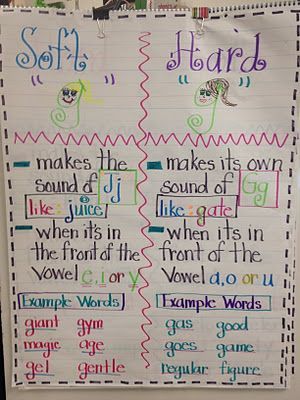 Soft
" "
- makes the
sound of Jj
like: juice
- when it's in
the front of the
vowel e, i or y
Example Words
giant gym
magic age
gel gentle
Hard
" "
- makes its own
sound of Gg
like: gate
- when it's in
front of the
vowel a, o or u
Example Words
gas good
goes game
regular figure